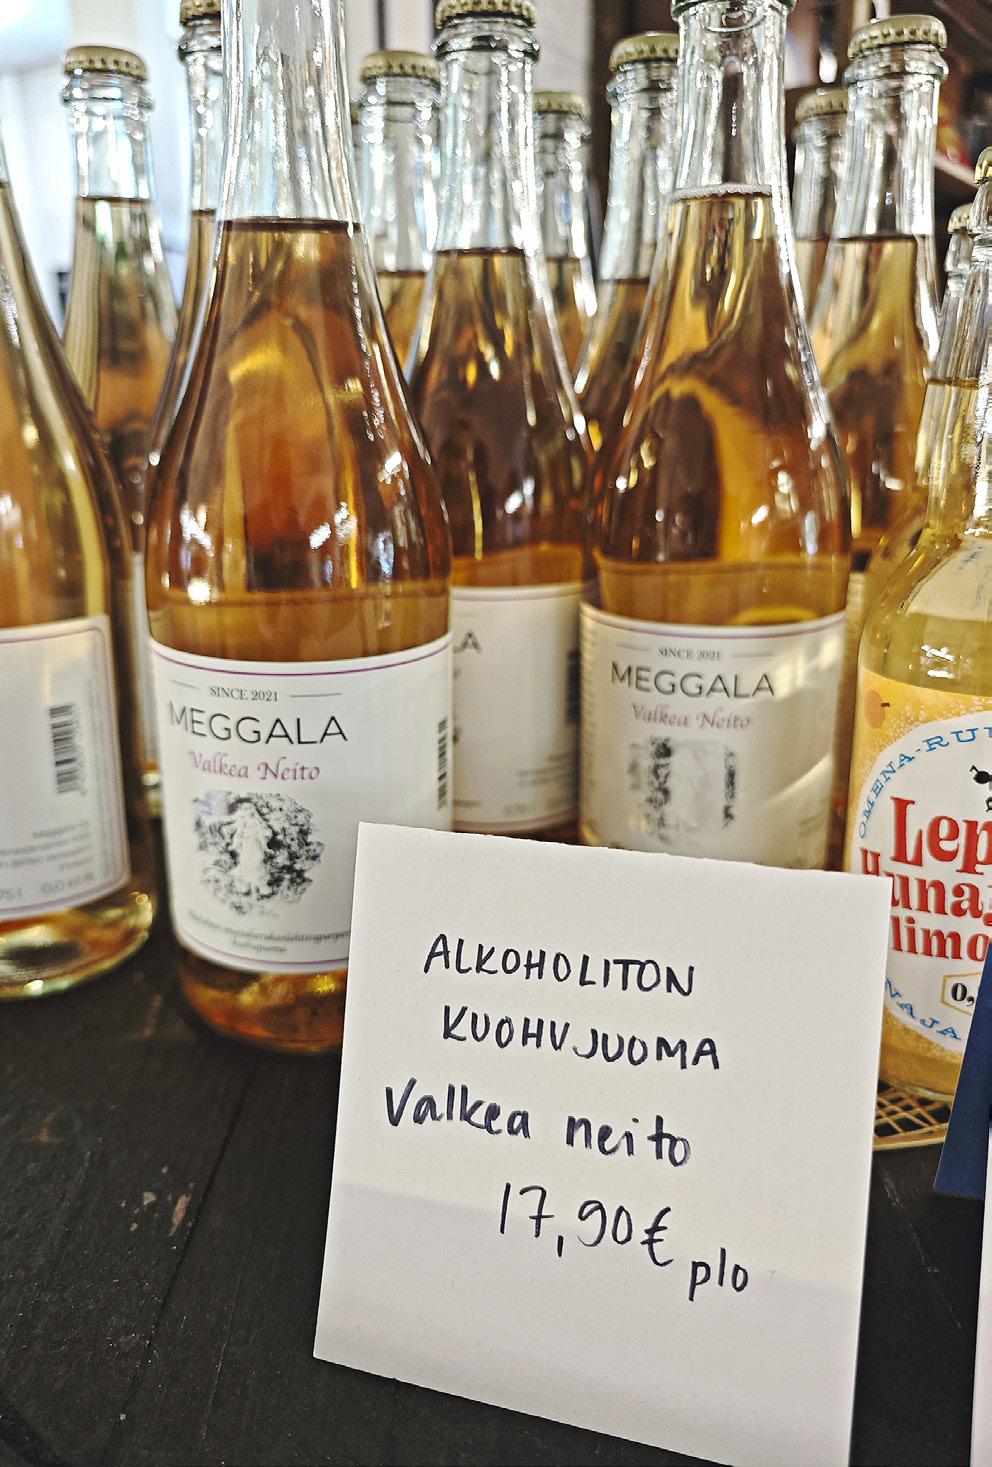 SINCE 2021
MEGGALA
Valkea Neito
SINCE 2021
MEGGALA
Valkea Neito
LA
OMENA-RU
Lep
Huna
limo
0,
NAJA
ALKOHOLITON
KUOHUJUOMA
Valkea neito
17,90€ plo